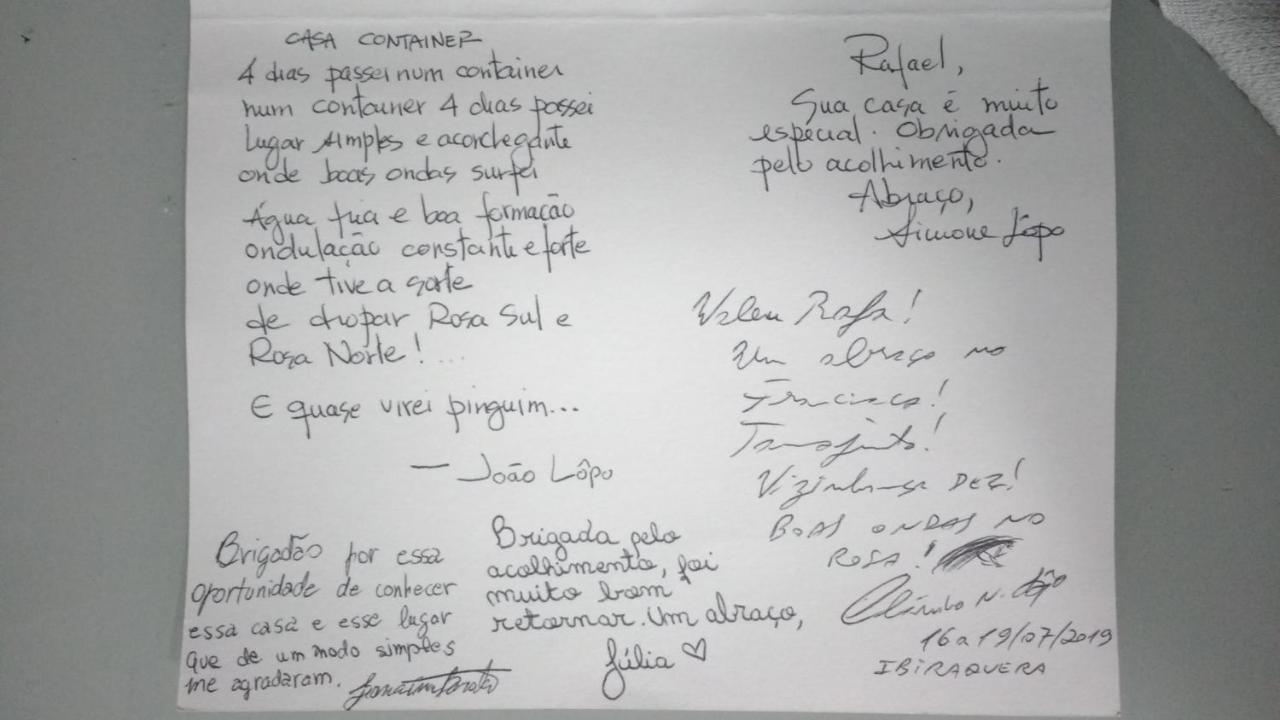 CASA CONTAINER
4 dias passei num container
num container 4 dias passei
lugar simples e aconchegante
onde boas ondas surfei
Água fria e boa formação
ondulação constante e forte
onde tive a sorte
de dropar Rosa Sul e
Rosa Norte! ...
E quase virei pinguim...
— João Lôpo
Rafael,
Sua casa é muito
especial. Obrigada
pelo acolhimento.
Abraço,
Simone Lôpo
Valeu Rafa!
Um abraço no
Francisco!
Vizinhança DEZ!
BOAS ONDAS NO
ROSA!
N. Lôpo
16 a 19/07/2019
IBIRAQUERA
Brigadão por essa
oportunidade de conhecer
essa casa e esse lugar
que de um modo simples
me agradaram.
Brigada pelo
acolhimento, foi
muito bom
retornar. Um abraço,
Júlia ♡